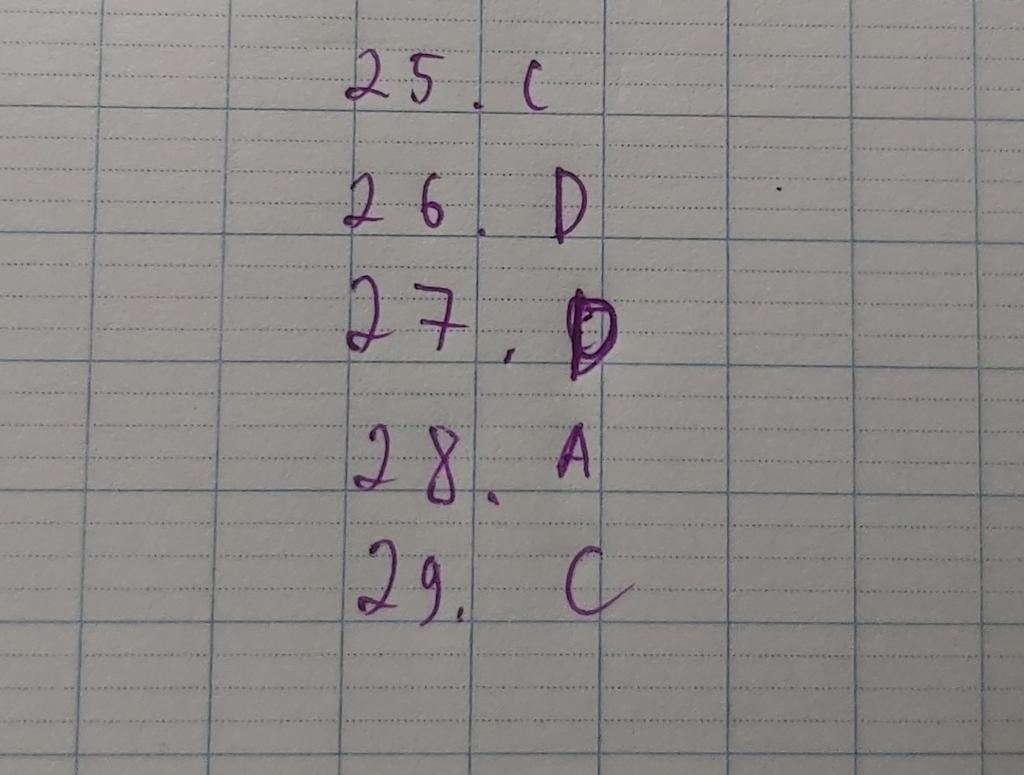 25. C
26. D
27. D
28. A
29. C